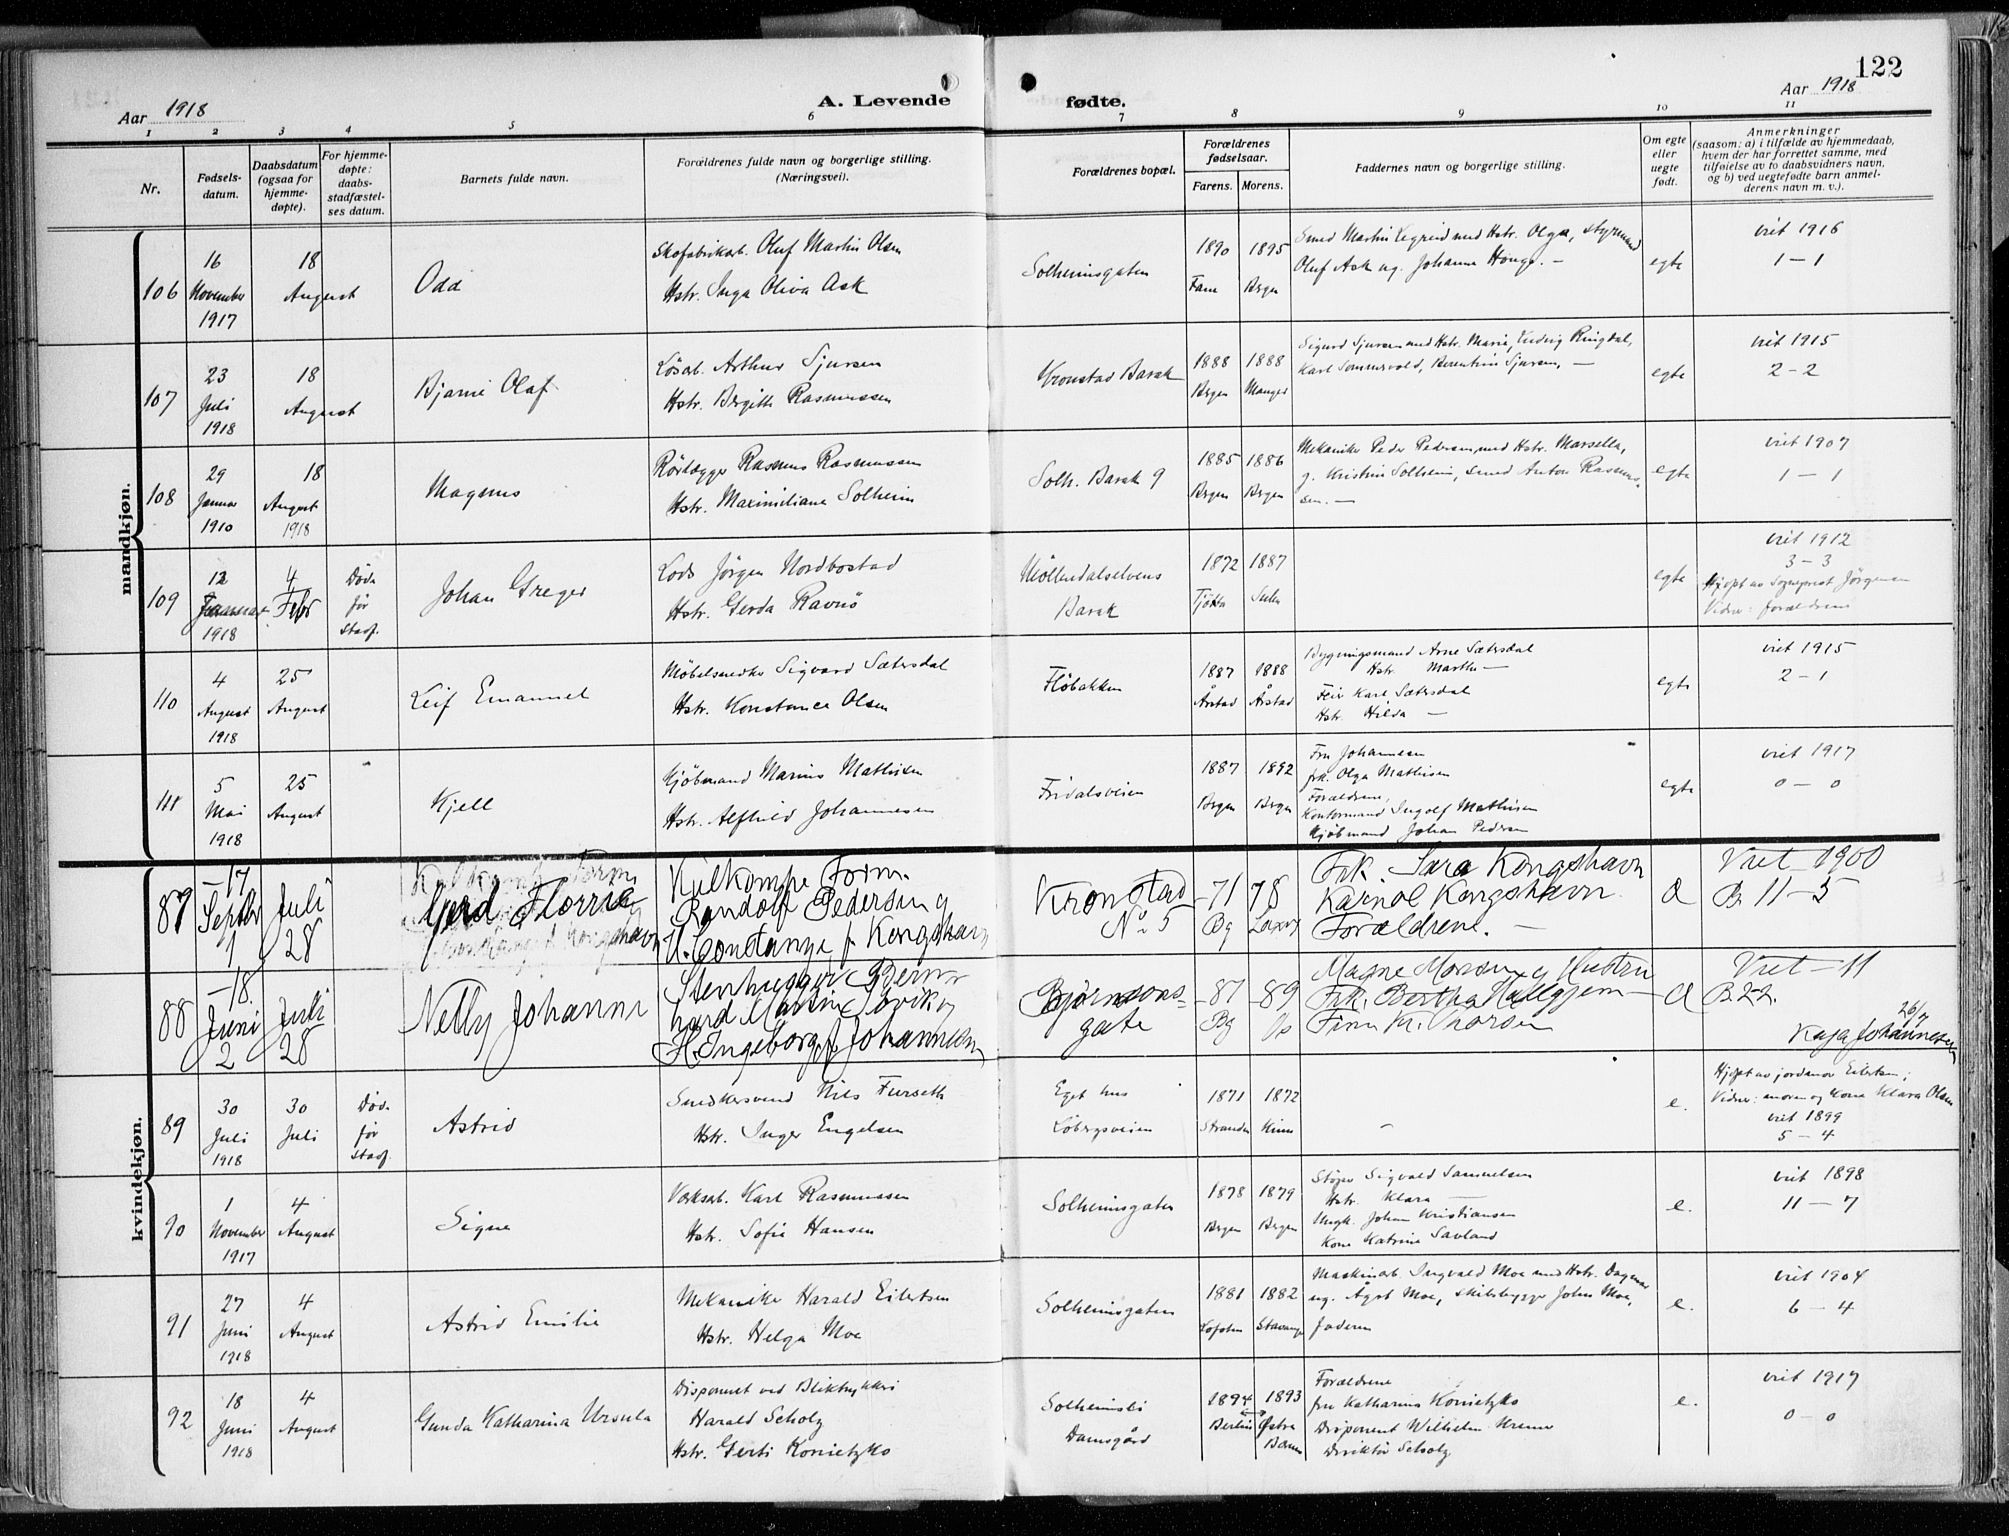 122
Aar 1918
A. Levende
fødte.
Aar 1918
1 2 3 4 5 6 7 8 9 10 11
Nr.
Fødsels-
datum.
Daabsdatum
(ogsaa for
hjemme-
døpte).
For hjemme-
døpte:
daabs-
stadfæstel-
ses datum.
Barnets fulde navn.
Forældrenes fulde navn og borgerlige stilling.
(Næringsvei).
Forældrenes bopæl.
Forældrenes
fødselsaar.
Farens. Morens.
Faddernes navn og borgerlige stilling.
Om egte
eller
uegte
født.
Anmerkninger
(saasom: a) i tilfælde av hjemmedaab,
hvem der har forrettet samme, med
tilføielse av to daabsvidners navn,
og b) ved uegtefødte barn anmel-
derens navn m. v.).
mandkjøn.
106
16
November
1917
18
August
Odd
Skofabrikarb. Oluf Martin Olsen
Hstr. Inga Oliva Ask
Solheimsgaten
1890 1895
Fane Bergen
Smed Martin med Hstr. Olga, styrmand
Oluf Ask ug. Johanne Hauge. —
egte
viet 1916
1 — 1
107
23
Juli
1918
18
August
Bjarne Olaf
Løsarb. Arthur Sjursen
Hstr. Bergitte Rasmussen
Kronstad Barak
1888 1888
Bergen Manger
Sigurd Sjursen med Hstr. Marie, Ludvig Ringdal,
Karl Sommervold, Berentine Sjursen, —
egte
viet 1915
2 - 2
108
29
Januar
1910
18
August
1918
Magnus
Rørlægger Rasmus Rasmussen
Hstr. Maximiliane Solheim
Solh. Barak 9
1885 1886
Bergen Bergen
Mekaniker Peder Pedersen med Hstr. Marsella,
g. Kristine Solheim, smed Anton Rasmus-
sen. —
egte
viet 1907
1 — 1
109
12
Januar
1918
4
Febr
Død
før
Stadf.
Johan Greger
Lods Jørgen Nordbostad
Hstr. Gerda Ravnø
Møllendalselvens
Barak
1872 1887
Tjøtta
egte
viet 1912
3 - 3
Hjdøpt av Sogneprest Jørgensen
Vidner: forældrene
110
4
August
1918
25
August
Leif Emanuel
Møbelsnedker Sigvard Sætersdal
Hstr. Konstance Olsen
Fløbakken
1887 1888
Årstad Årstad
Bygningsmand Arne Sætersdal
Hstr. Marthe —
Karl Sætersdal
Hstr. Hilda —
egte
viet 1915
2 - 1
111
5
Mai
1918
25
August
Kjell
Kjøbmand Marius Mathisen
Hstr. Alfhild Johannesen
Fridalsveien
1887 1892
Bergen Bergen
Fru Johannesen
frk. Olga Mathisen
Forældrene,
Kontormand Ingolf Mathisen
Kjøbmand Johan Pedersen
egte
viet 1917
0 — 0
kvindekjøn.
87
-17
Septbr
1
Juli
28
Gerd Florrie
Form.
Randolf Pedersen og
H. Constanze f. Kongshavn
Kronstad
No 5
-71 78
Bg
Frk. Sara Kongshavn
Karnol Kongshavn.
Forældrene. —
Æ
Viet - 1900
B. 11 - 5
88
-18.
Juni
2
Juli
28
Nelly Johanne
Stenhugger Bern-
hard Martin Søvik og
H. Ingeborg f. Johannesen
Bjørnsons-
gate
-87 -89
Bg Os
Magne Monsen og Hustru
Frk. Bertha
Finn Kr. Thorsen
Æ
Viet - 11
B. 22.
26/7
Kaja Johannesen
89
30
Juli
1918
30
Juli
Død
før
Stadf.
Astrid
Snedkersvend Nils Furseth
Hstr. Inger Engelsen
Eget hus
Løbergsveien
1871 1872
Stranden Kinn
-
e.
Hjdøpt av jordmor Eilertsen;
Vidner: moren og kone Klara Olsen
viet 1899
5 - 4
90
1
November
1917
4
August
Signe
Verksarb. Karl Rasmussen
Hstr. Sofie Hansen
Solheimsgaten
1878 1879
Bergen Bergen
Støper Sigvald Samuelsen
Hstr. Klara —
Ungk. Johan Kristiansen
Kone Katrine Savland
e.
viet 1898
11 — 7
91
27
Juni
1918
4
August
Astrid Emilie
Mekaniker Harald Eilertsen
Hstr. Helga Moe
Solheimsgaten
1881 1882
Lofoten Stavanger
Maskinarb. Ingvald Moe med Hstr. Dagmar
ug. Ågot Moe, skibsbygger John Moe,
faderen
e.
viet 1904
6 - 4
92
18
Juni
1918
4
August
Gunda Katharina Ursula
Disponent ved Bliktrykkeri
Harald Scholz
Hstr. Gerti Konietzko
Solheimsli
Damsgård
1894 1893
Berlin Østra
Forældrene
fru Katharina Konietzko
Disponent Wilhelm
Direktør Scholz
e.
viet 1917
0 - 0